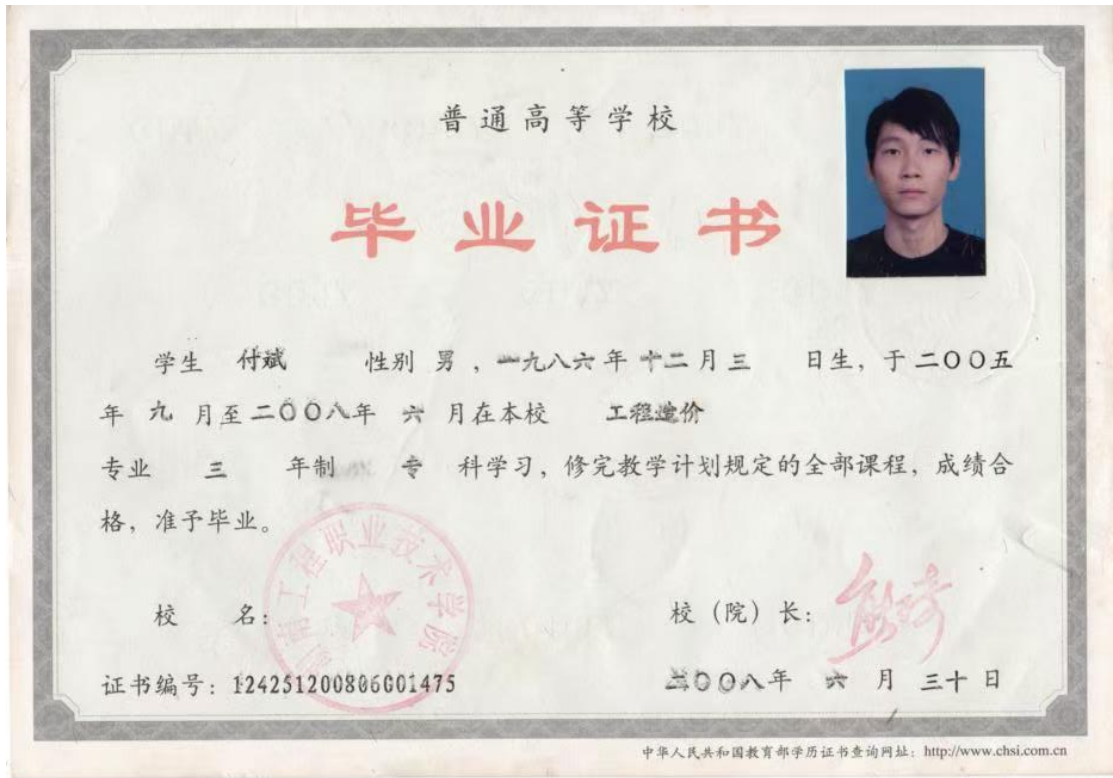 普通高等学校
毕业证书
学生 付斌 性别 男 ,一九八六年 十二月三 日生, 于二〇〇五
年 九 月至二〇〇八年 六 月在本校 工程造价
专业 三 年制 专 科学习, 修完教学计划规定的全部课程, 成绩合
格, 准予毕业。
湖南工程职业技术学院
校 名:
校 (院) 长:
证书编号: 124251200806001475
二〇〇八年 六 月 三十 日
中华人民共和国教育部学历证书查询网址: http://www.chsi.com.cn